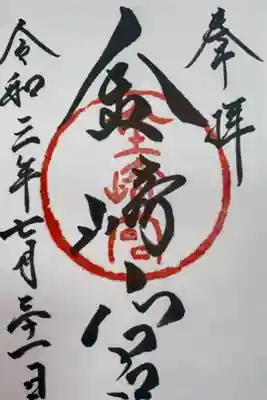 奉拝
金崎宮
令和三年七月三十一日